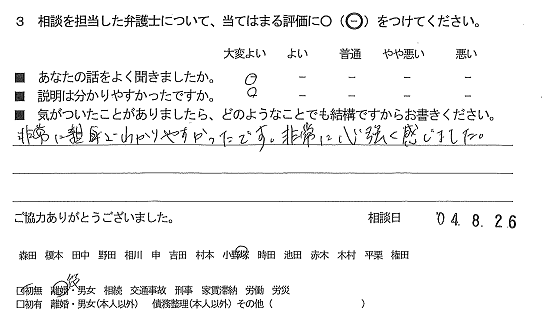 3 相談を担当した弁護士について、当てはまる評価に○(⊖)をつけてください。
大変よい よい 普通 やや悪い 悪い
■ あなたの話をよく聞きましたか。 ○ － － － －
■ 説明は分かりやすかったですか。 ○ － － － －
■ 気がついたことがありましたら、どのようなことでも結構ですからお書きください。
非常に親身でわかりやすかったです。非常に心強く感じました。
ご協力ありがとうございました。 相談日 '04.8.26
森田 榎本 田中 野田 相川 申 吉田 村本 小野塚 時田 池田 赤木 木村 平栗 権田
□初無 離婚・男女 相続 交通事故 刑事 家賃滞納 労働 労災
□初有 離婚・男女(本人以外) 債務整理(本人以外) その他( )